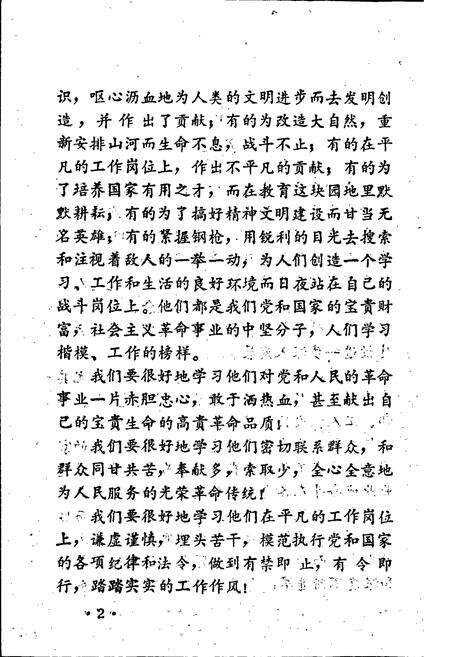 识，呕心沥血地为人类的文明进步而去发明创
造，并作出了贡献；有的为改造大自然，重
新安排山河而生命不息，战斗不止；有的在平
凡的工作岗位上，作出不平凡的贡献；有的为
了培养国家有用之才，而在教育这块园地里默
默耕耘；有的为了搞好精神文明建设而甘当无
名英雄；有的紧握钢枪，用锐利的目光去搜索
和注视着敌人的一举一动，为人们创造一个学
习、工作和生活的良好环境而日夜站在自己的
战斗岗位上。他们都是我们党和国家的宝贵财
富，社会主义革命事业的中坚分子，人们学习
楷模、工作的榜样。
我们要很好地学习他们对党和人民的革命
事业一片赤胆忠心，敢于洒热血，甚至献出自
己的宝贵生命的高贵革命品质；
我们要很好地学习他们密切联系群众，和
群众同甘共苦，奉献多，索取少，全心全意地
为人民服务的光荣革命传统！
我们要很好地学习他们在平凡的工作岗位
上，谦虚谨慎，埋头苦干，模范执行党和国家
的各项纪律和法令，做到有禁即止，有令即
行，踏踏实实的工作作风！
·2·